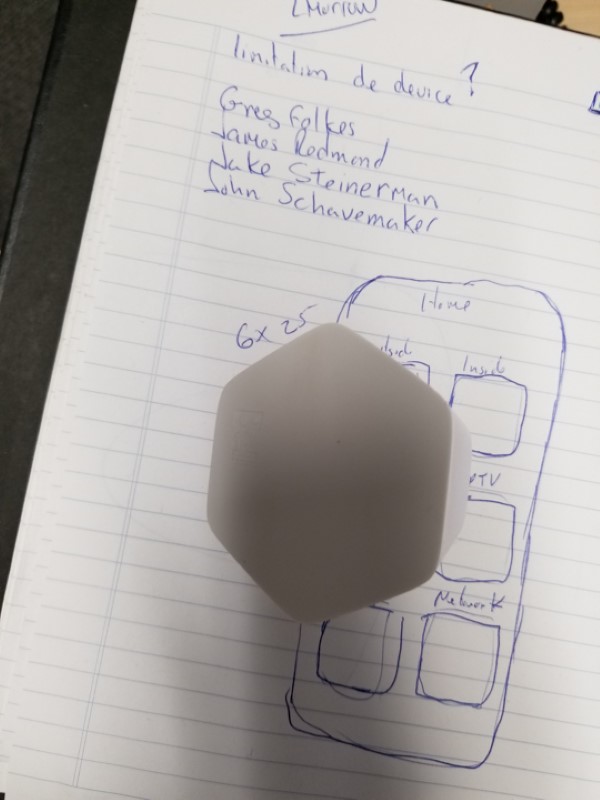 limitation de device ?
Greg Folkes
James Redmond
Jake Steinerman
John Schavemaker
Home
6x 25
Network